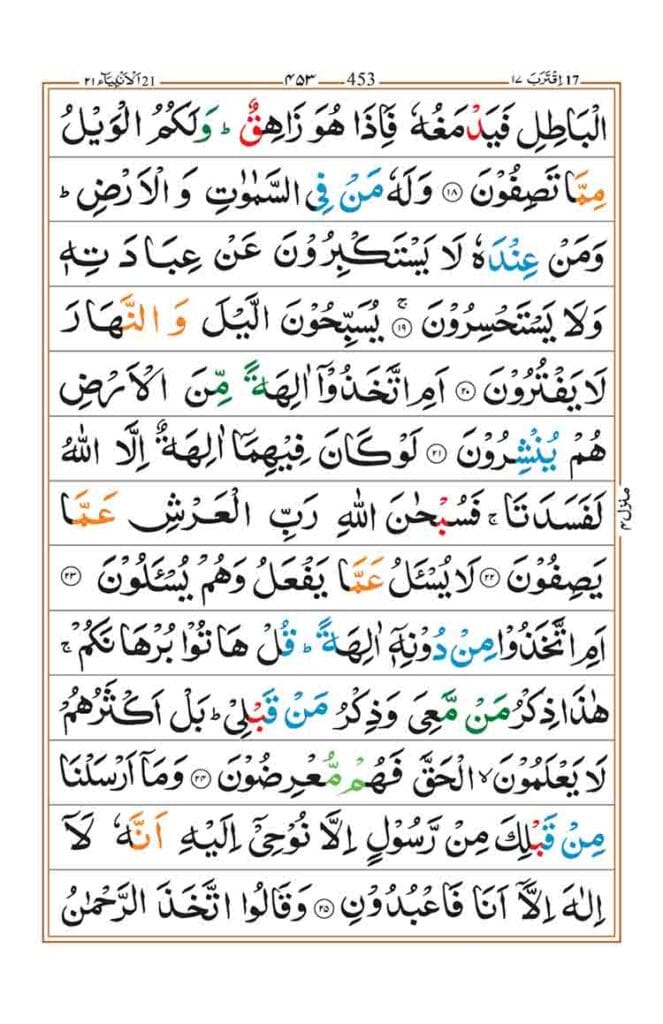 اِقْتَرَبَ 17 ١٧ 453 ٤٥٣ اَلْاَنْۢبِيَآء 21 ٢١
الْبَاطِلِ فَيَدْمَغُهٗ فَاِذَا هُوَ زَاهِقٌ ؕ وَلَكُمُ الْوَيْلُ
مِمَّا تَصِفُوْنَ ۝١٨ وَلَهٗ مَنْ فِى السَّمٰوٰتِ وَ الْاَرْضِ ؕ
وَمَنْ عِنْدَهٗ لَا يَسْتَكْبِرُوْنَ عَنْ عِبَادَتِهٖ
وَلَا يَسْتَحْسِرُوْنَ ۚ ۝١٩ يُسَبِّحُوْنَ الَّيْلَ وَ النَّهَارَ
لَا يَفْتُرُوْنَ ۝٢٠ اَمِ اتَّخَذُوْۤا اٰلِهَةً مِّنَ الْاَرْضِ
هُمْ يُنْشِرُوْنَ ۝٢١ لَوْ كَانَ فِيْهِمَاۤ اٰلِهَةٌ اِلَّا اللّٰهُ
لَفَسَدَتَا ۚ فَسُبْحٰنَ اللّٰهِ رَبِّ الْعَرْشِ عَمَّا
يَصِفُوْنَ ۝٢٢ لَا يُسْـَٔلُ عَمَّا يَفْعَلُ وَهُمْ يُسْـَٔلُوْنَ ۝٢٣
اَمِ اتَّخَذُوْا مِنْ دُوْنِهٖۤ اٰلِهَةً ؕ قُلْ هَاتُوْا بُرْهَانَكُمْ ۚ
هٰذَا ذِكْرُ مَنْ مَّعِىَ وَذِكْرُ مَنْ قَبْلِىْ ؕ بَلْ اَكْثَرُهُمْ
لَا يَعْلَمُوْنَ ۙ الْحَقَّ فَهُمْ مُّعْرِضُوْنَ ۝٢٤ وَمَاۤ اَرْسَلْنَا
مِنْ قَبْلِكَ مِنْ رَّسُوْلٍ اِلَّا نُوْحِىْۤ اِلَيْهِ اَنَّهٗ لَاۤ
اِلٰهَ اِلَّاۤ اَنَا فَاعْبُدُوْنِ ۝٢٥ وَقَالُوا اتَّخَذَ الرَّحْمٰنُ
منزل ٤